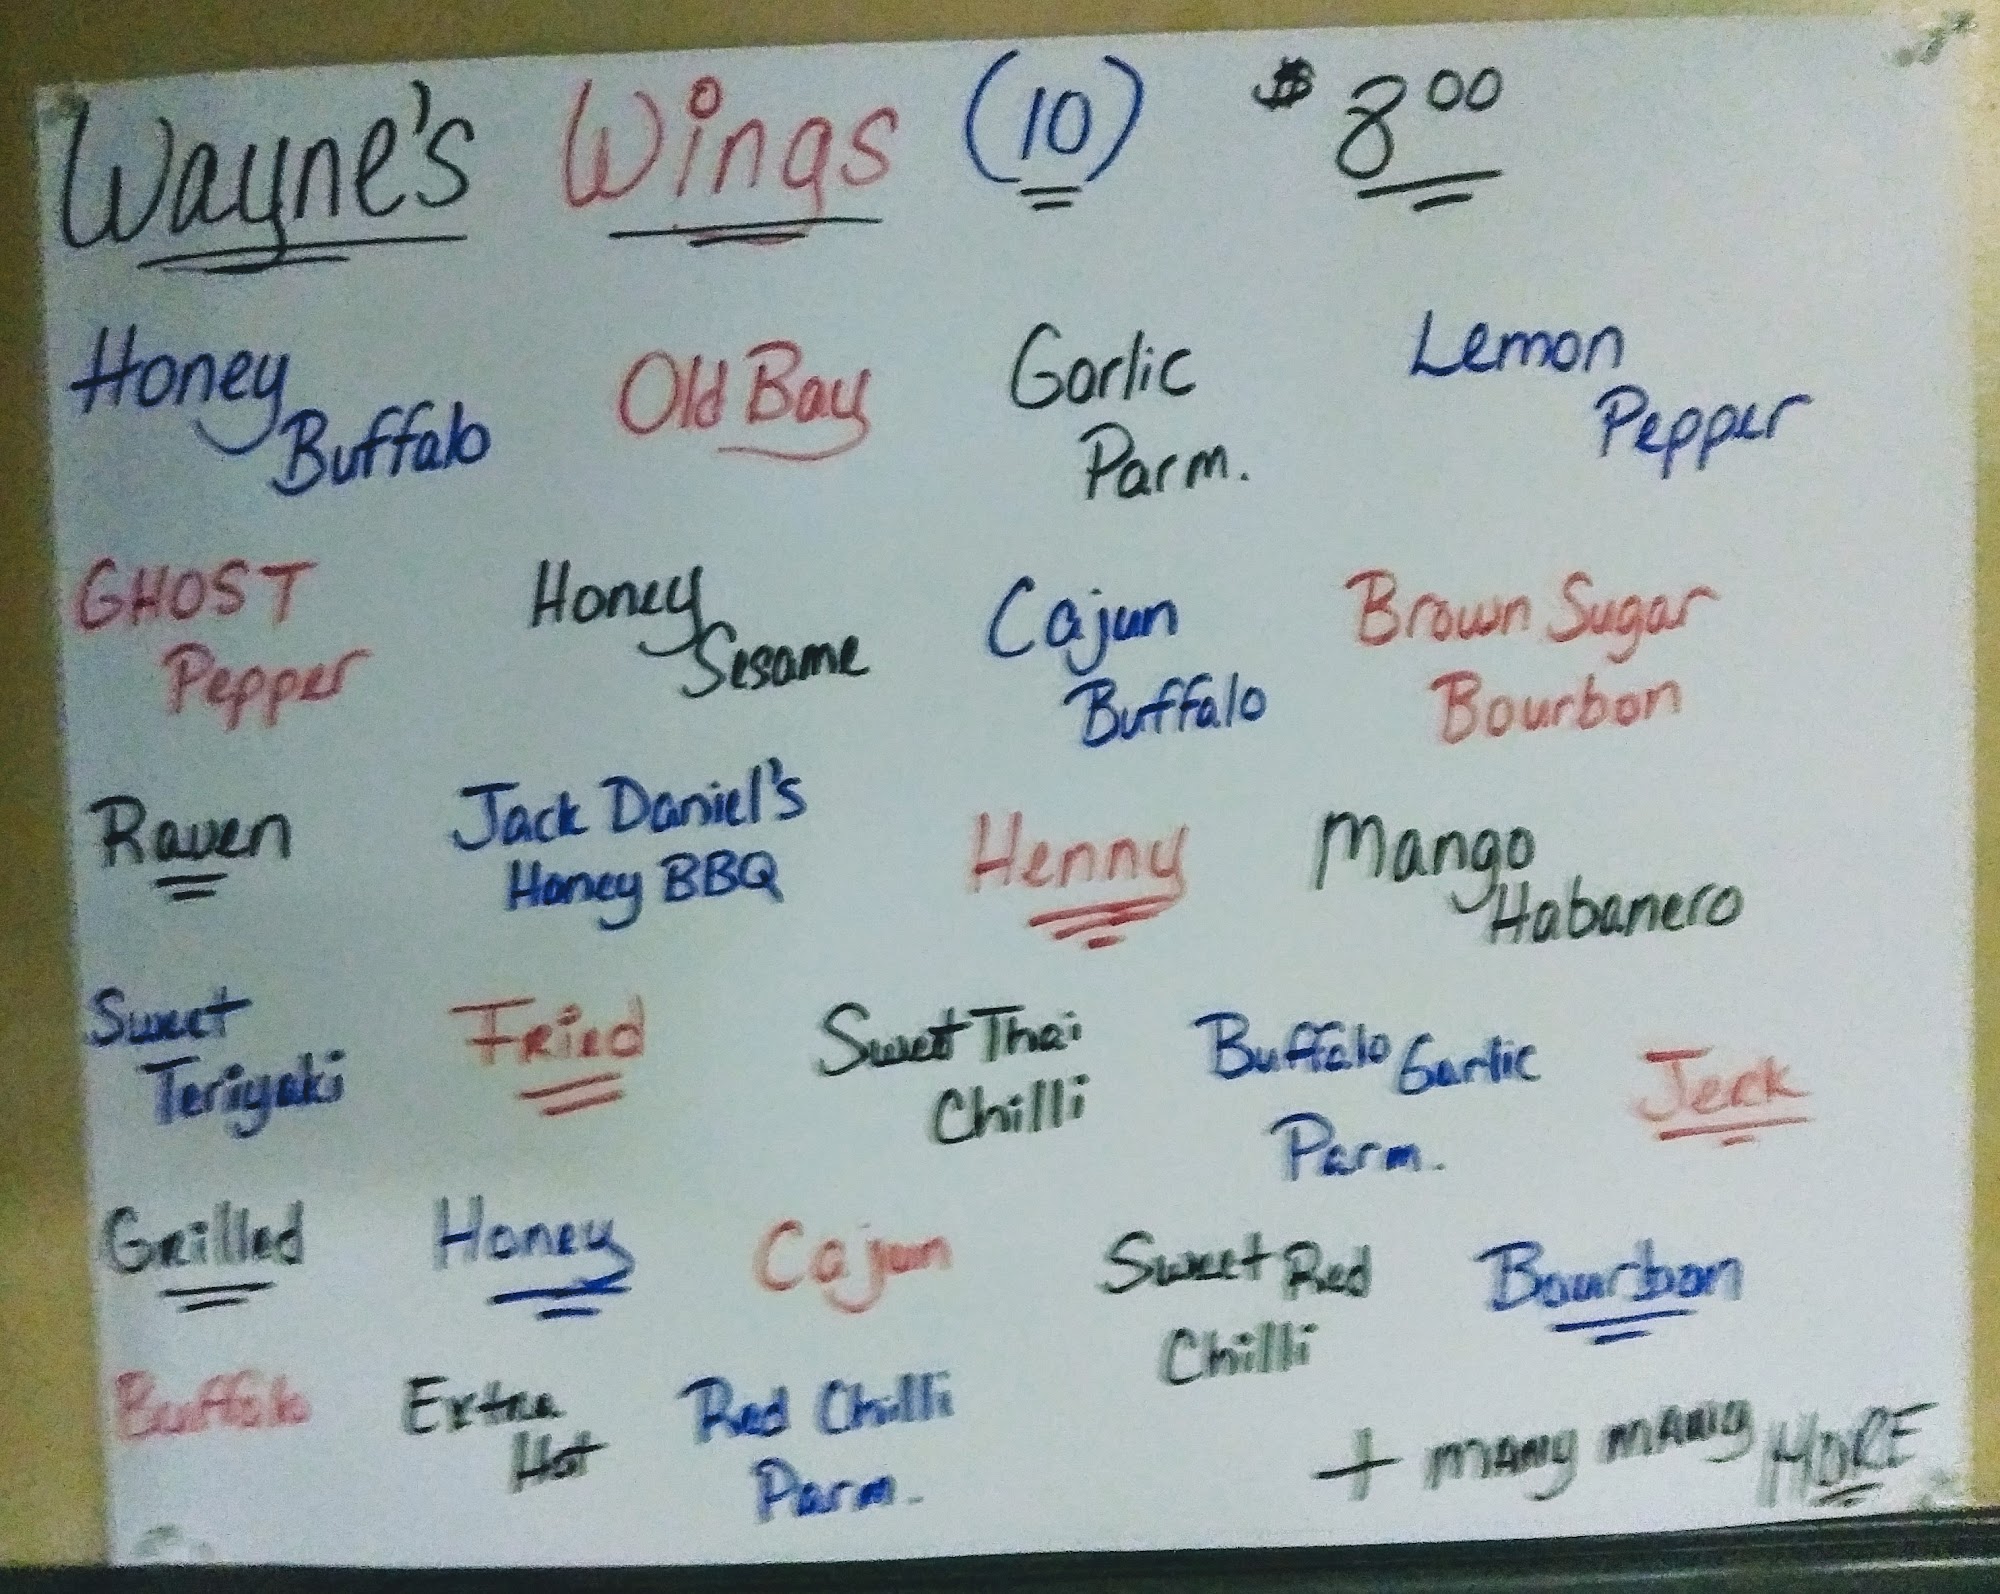 Wayne's Wings (10) $8.00
Honey
Buffalo
Old Bay
Garlic
Parm.
Lemon
Pepper
GHOST
Pepper
Honey
Sesame
Cajun
Buffalo
Brown Sugar
Bourbon
Raven
Jack Daniel's
Honey BBQ
Henny
Mango
Habanero
Sweet
Teriyaki
Fried
Sweet Thai
Chilli
Buffalo Garlic
Parm.
Jerk
Grilled
Honey
Cajun
Sweet Red
Chilli
Bourbon
Buffalo
Extra
Hot
Red Chilli
Parm.
+ MANY MANY MORE